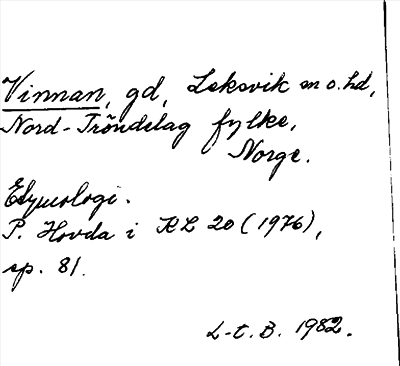 Vinnan, gd, Leksvik sn o. hd,
Nord-Tröndelag fylke,
Norge.
Etymologi.
P. Hovda i KL 20 (1976),
sp. 81.
L-t. B. 1982.